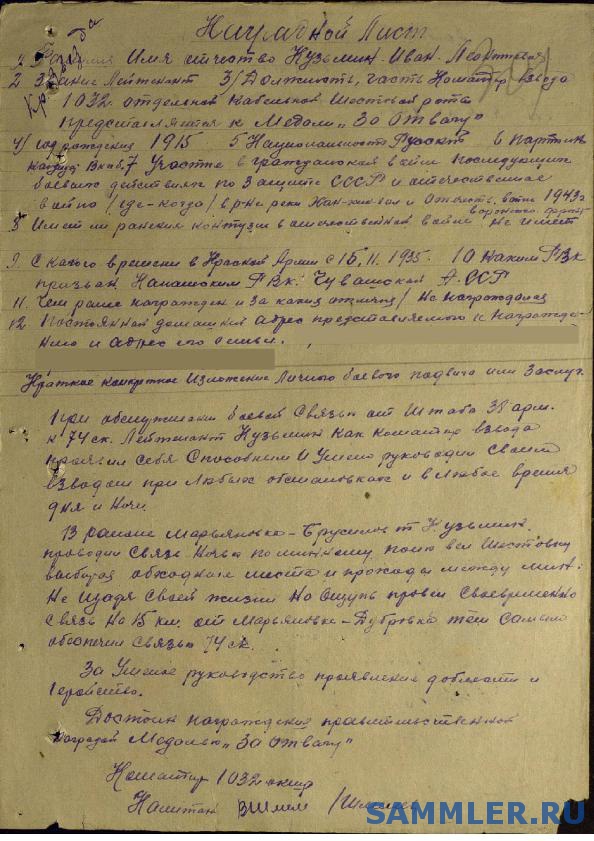 Наградной Лист
1 Фамилия Имя отчество Кузьмин Иван Леонтьевич
2 Звание Лейтенант 3/ Должность, часть Командир взвода
1032 отдельной Кабельной Шестовой роты
представляется к Медали „За Отвагу"
4/ год рождения 1915 5 Национальность Русский 6 партийн
кандид ВКПб. 7 Участие в гражданской войне последующих
боевых действиях по защите СССР и отечественной
войне /где-когда/ в р-не реки и Отечеств. войне 1943 г
воронежск. фронт
8 Имеет ли ранения контузии в отечественной войне Не имеет
9. С какого времени в Красной Армии с 15.11.1935. 10 Каким РВК
призван РВК. Чувашской АССР
11. Чем ранее награжден и за какие отличия / Не награждался
12. Постоянной домашний адрес представляемого к награжде-
нию и адрес его семьи.
Краткое конкретное Изложение Личного боевого подвига или Заслуг.
При обслуживании боевой Связью от Штаба 38 арм.
к 74 ск. Лейтенант Кузьмин как командир взвода
проявил себя Способным И Умело руководил Своим
взводом при Любых обстановках и в любое время
дня и Ночи.
В районе Марьяновка-Брусилов т. Кузьмин.
проводил Связь Ночью по минному полю вел Шестовку
выбирая обходные места и проходы между мин.
Не щадя Своей жизни На Ощупь провел Своевременно
Связь На 15 км. от Марьяновки-Дубровка тем Самым
обеспечил Связью 74 ск.
За Умелое руководство проявление доблести и
Геройство.
Достоин награждения правительственной
наградой Медалью „За Отвагу"
Командир 1032 окшр
Капитан
SAMMLER.RU